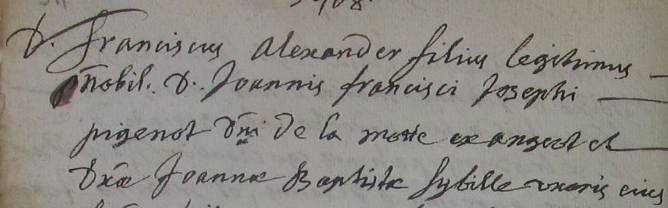 1708.
D. Franciscus Alexander filius legitimus
nobil. D. Joannis francisci Josephi
pigenot Dni de la motte ex angeot et
Dnæ Joannæ Baptistæ Sybille uxoris eius